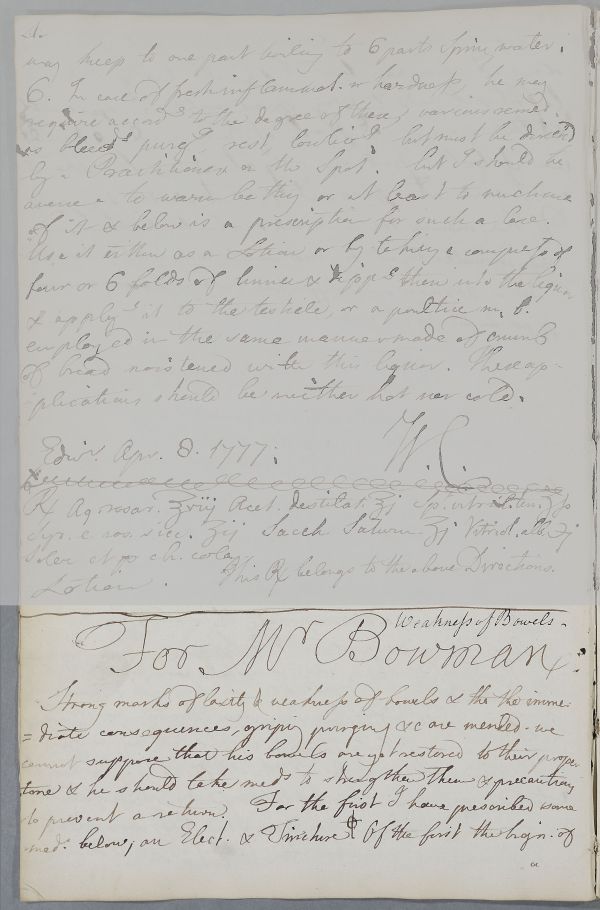 may keep to one part boiling to 6 parts Spring water.
6. In case of fresh inflammat. or hardness, he may
require accordg to the degree of these, various remed.
as bleedg purgg rest, but must be direct'd
by a Practitioner on the Spot. but I should be
averse to warm bathg or at least to much use
of it & below is a prescription for such a case.
Use it either as a Lotion or by taking a compress of
four or 6 folds of linnen & dippg them into the liquor
& applyg it to the testicle, or a poultice m. b.
employed in the same manner made of crumb
of bread moistened with this liquor. These ap-
plications should be neither hot nor cold.
Edinr. Apr. 8. 1777. W. C.
℞ Aq rosar. ℥viij Acet. destilat. ℥j Sp. vitriol. ten.
Syr. e ros. sicc. ʒij Sacch. Saturn. ʒj Vitriol. alb. ʒj
Solve ch. cola.
Lotion. This ℞ belongs to the above Directions.
Weakness of Bowels.
For Mr Bowman.
Strong marks of laxity & weakness of bowels & tho the imme-
=diate consequences, griping purging &c are mended. we
cannot suppose that his bowels are yet restored to their proper
tone & he should take meds to strengthen them & precautions
to prevent a return. For the first I have prescribed some
med. below, an Elect. & Tincture Of the first the bign. of
a